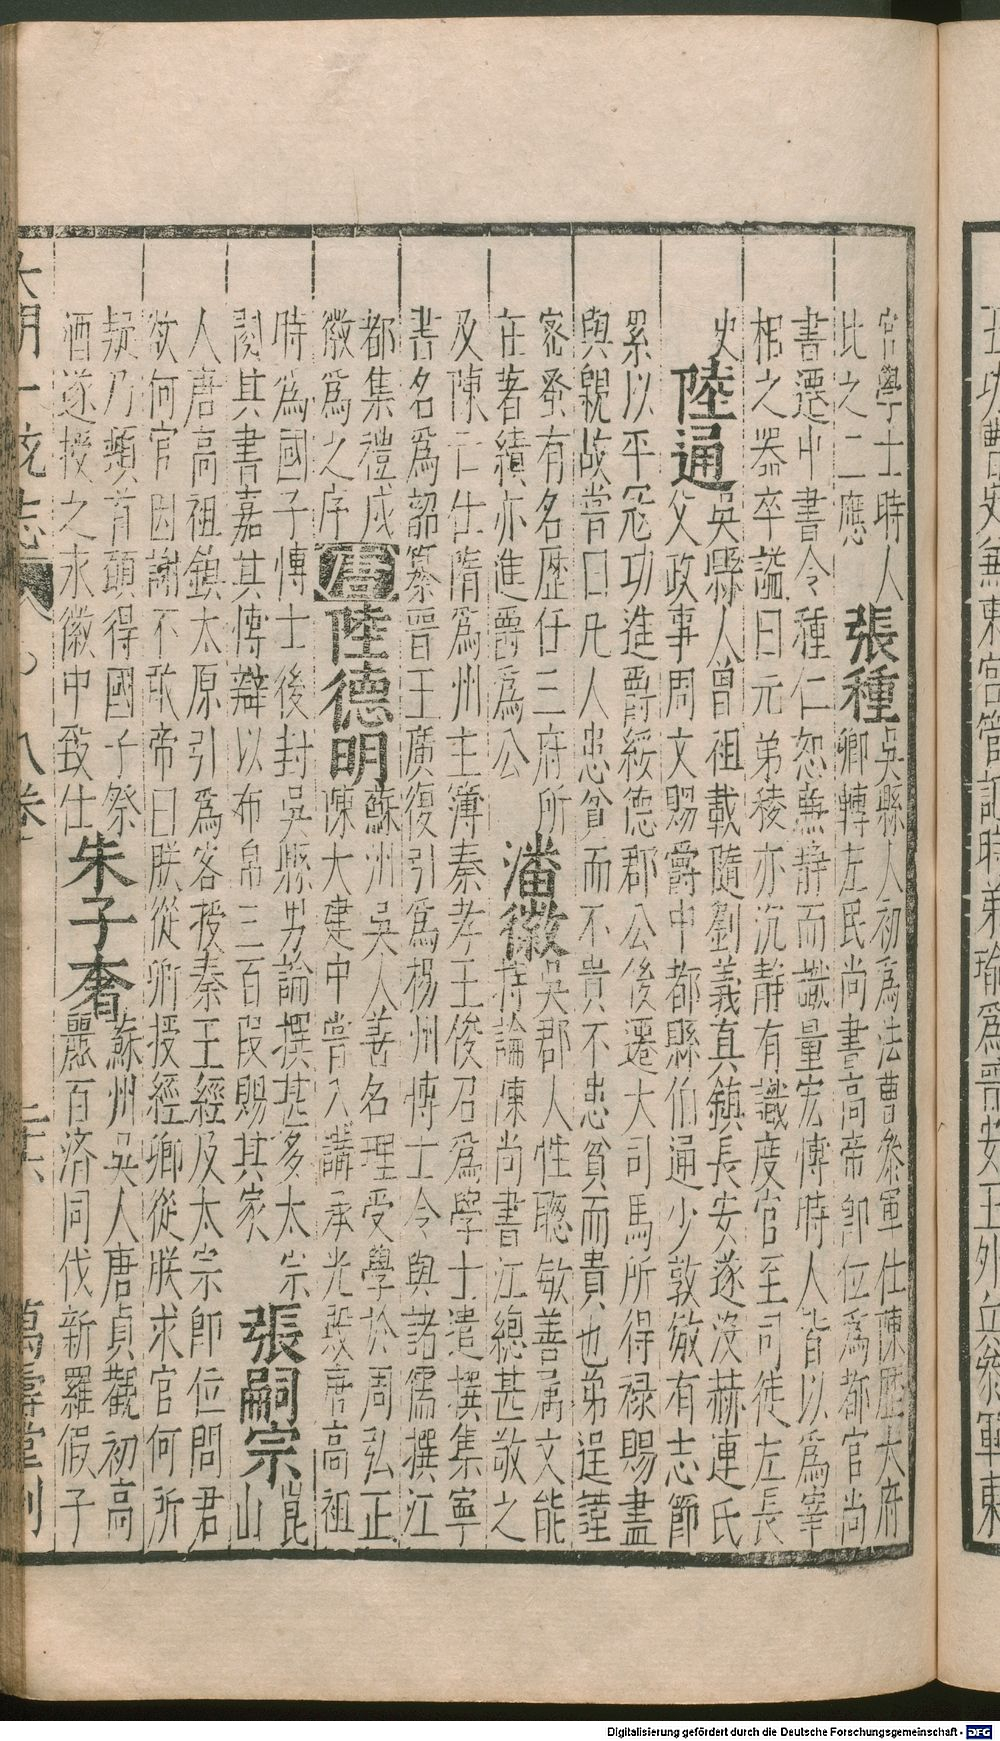 功曹史兼東宮管記時弟瑜爲晉安王外兵參軍東
宮學士時人
比之二應
張種
吳縣人初爲法曹參軍仕陳歷太府
卿轉左民尚書高帝即位爲都官尚
書遷中書令種仁恕廉靜而識量宏博時人皆以爲宰
相之器卒謚曰元弟稜亦沉靜有識度官至司徒左長
史
陸通
吳縣人曾祖載隨劉義真鎮長安遂沒赫連氏
父政事周文賜爵中都縣伯通少敦敏有志節
累以平冦功進爵綏德郡公後遷大司馬所得祿賜盡
與親故嘗曰凡人患貧而不貴不患貧而貴也弟逞謹
密蚤有名歷任三府所
在著績亦進爵爲公
潘徽
吳郡人性聰敏善属文能
持論陳尚書江總甚敬之
及陳亡仕隋爲州主簿秦孝王俊召爲學士遣撰集字
書名爲韶纂晉王廣復引爲楊州博士令與諸儒撰江
都集禮成
徽爲之序
唐
陸德明
蘇州吳人善名理受學於周弘正
陳大建中嘗入講承光殿唐高祖
時爲國子博士後封吳縣男論撰甚多太宗
閱其書嘉其博辯以布帛二百段賜其家
張嗣宗
崑
山
人唐高祖鎮太原引爲客授秦王經及太宗即位問君
欲何官因謝不敢帝曰朕從卿授經卿從朕求官何所
疑乃頓首願得國子祭
酒遂授之永徽中致仕
朱子奢
蘇州吳人唐貞觀初高
麗百濟同伐新羅假子
大明一統志 八卷 二十六 萬壽堂刊
Digitalisierung gefördert durch die Deutsche Forschungsgemeinschaft - DFG